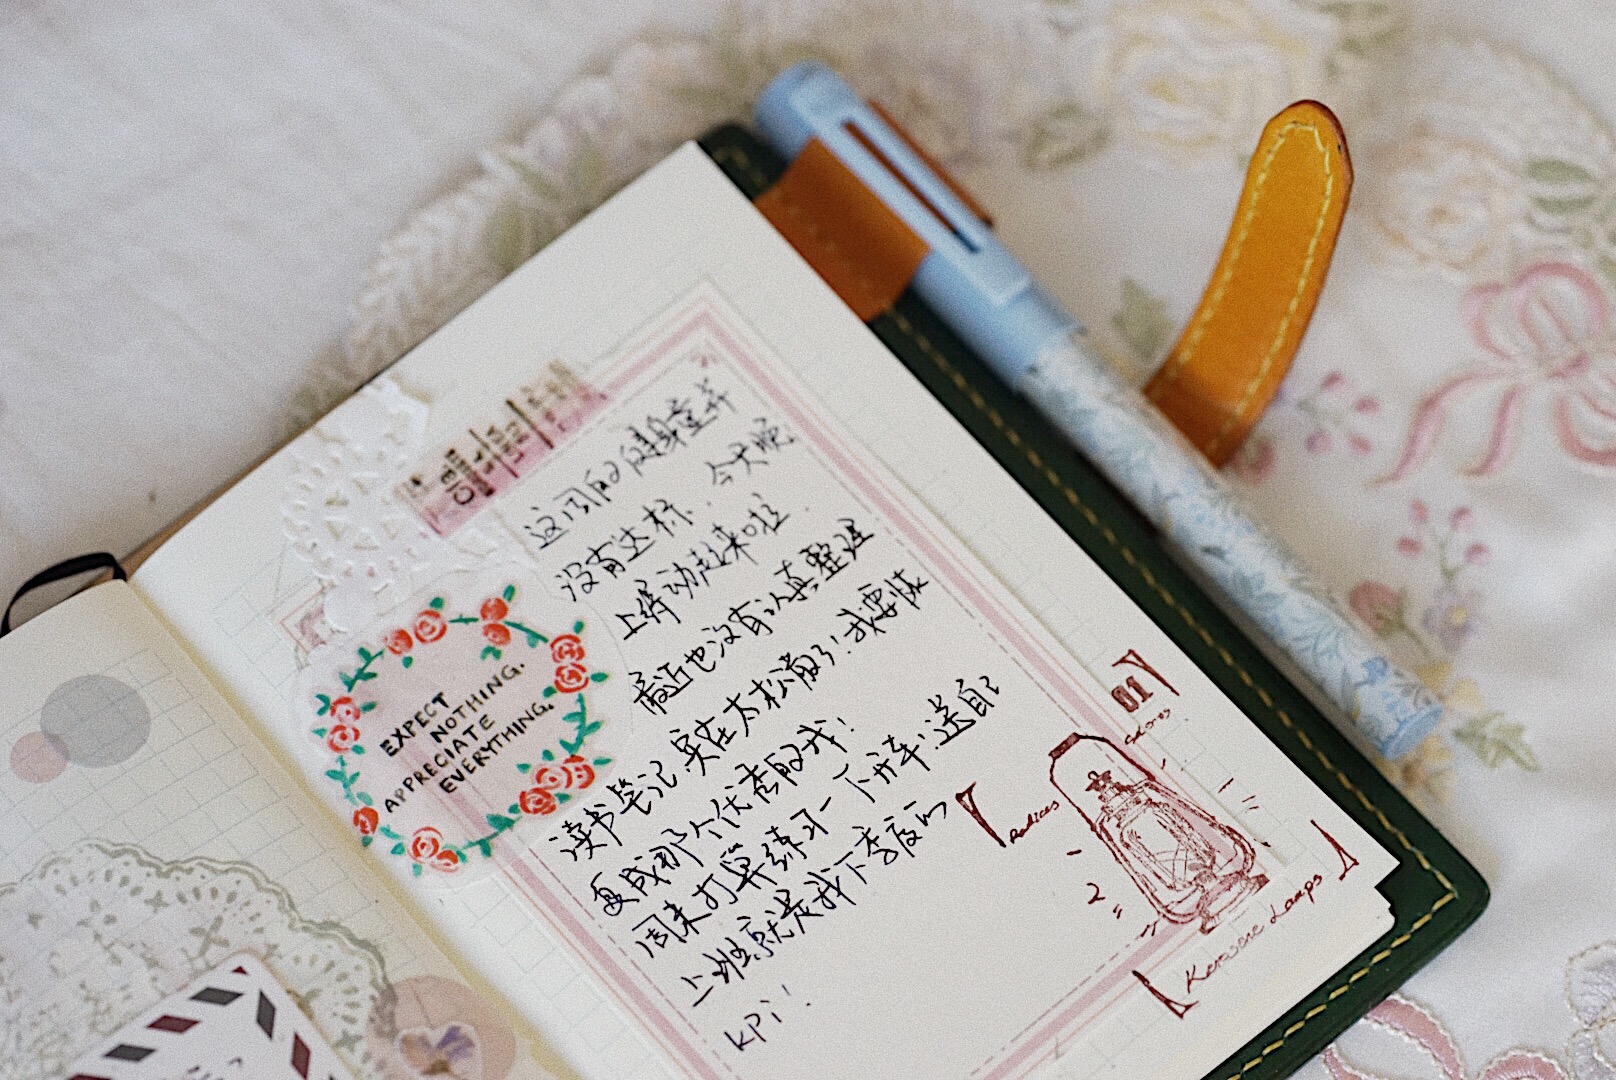 EXPECT
NOTHING.
APPRECIATE
EVERYTHING.
这周的健身童并
没有达标.今天顺
上锋动起来啦.
最近也没有认真整理
读书笔记.实在太松懈了!我要恢
复成那个优秀的我!
周末打算练习一下开车!送自己
上班就是我下季度的
KPi!
01
Kerosene Lamps